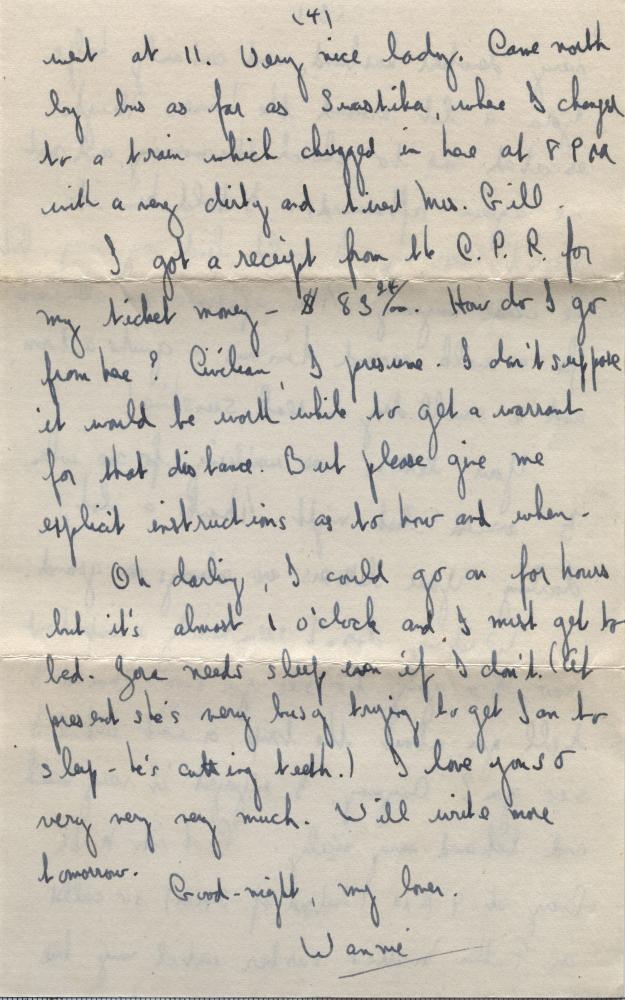 (4)
went at 11. Very nice lady. Came north
by bus as far as Swastika, where I changed
to a train which chugged in here at 8 PM
with a very dirty and tired Mrs. Gill.
I got a receipt from the C. P. R. for
my ticket money - $ 83 24/00. How do I go
from here? Civilian, I presume. I don't suppose
it would be worth while to get a warrant
for that distance. But please give me
explicit instructions as to how and when -
Oh darling, I could go on for hours
but it's almost 1 o'clock and I must get to
bed. Zora needs sleep even if I don't. (At
present she's very busy trying to get Ian to
sleep - he's cutting teeth.) I love you so
very very very much. Will write more
tomorrow.
Good-night, my lover.
Wannie